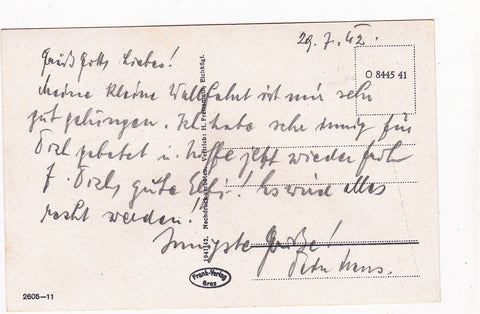 29. 7. 42.
Grüß Gott, Liebes!
O 8445 41
Meine kleine Wallfahrt ist mir sehr
gut gelungen. Ich habe sehr innig für
Dich gebetet u. hoffe jetzt wieder
f. Dich, gute Elli! Es wird alles
recht werden!
Innigste Grüße!
Dein Hans.
1941/42. Nachdruck verboten. Vertrieb: H. Eichkögl.
Frank-Verlag
Graz
2605—11